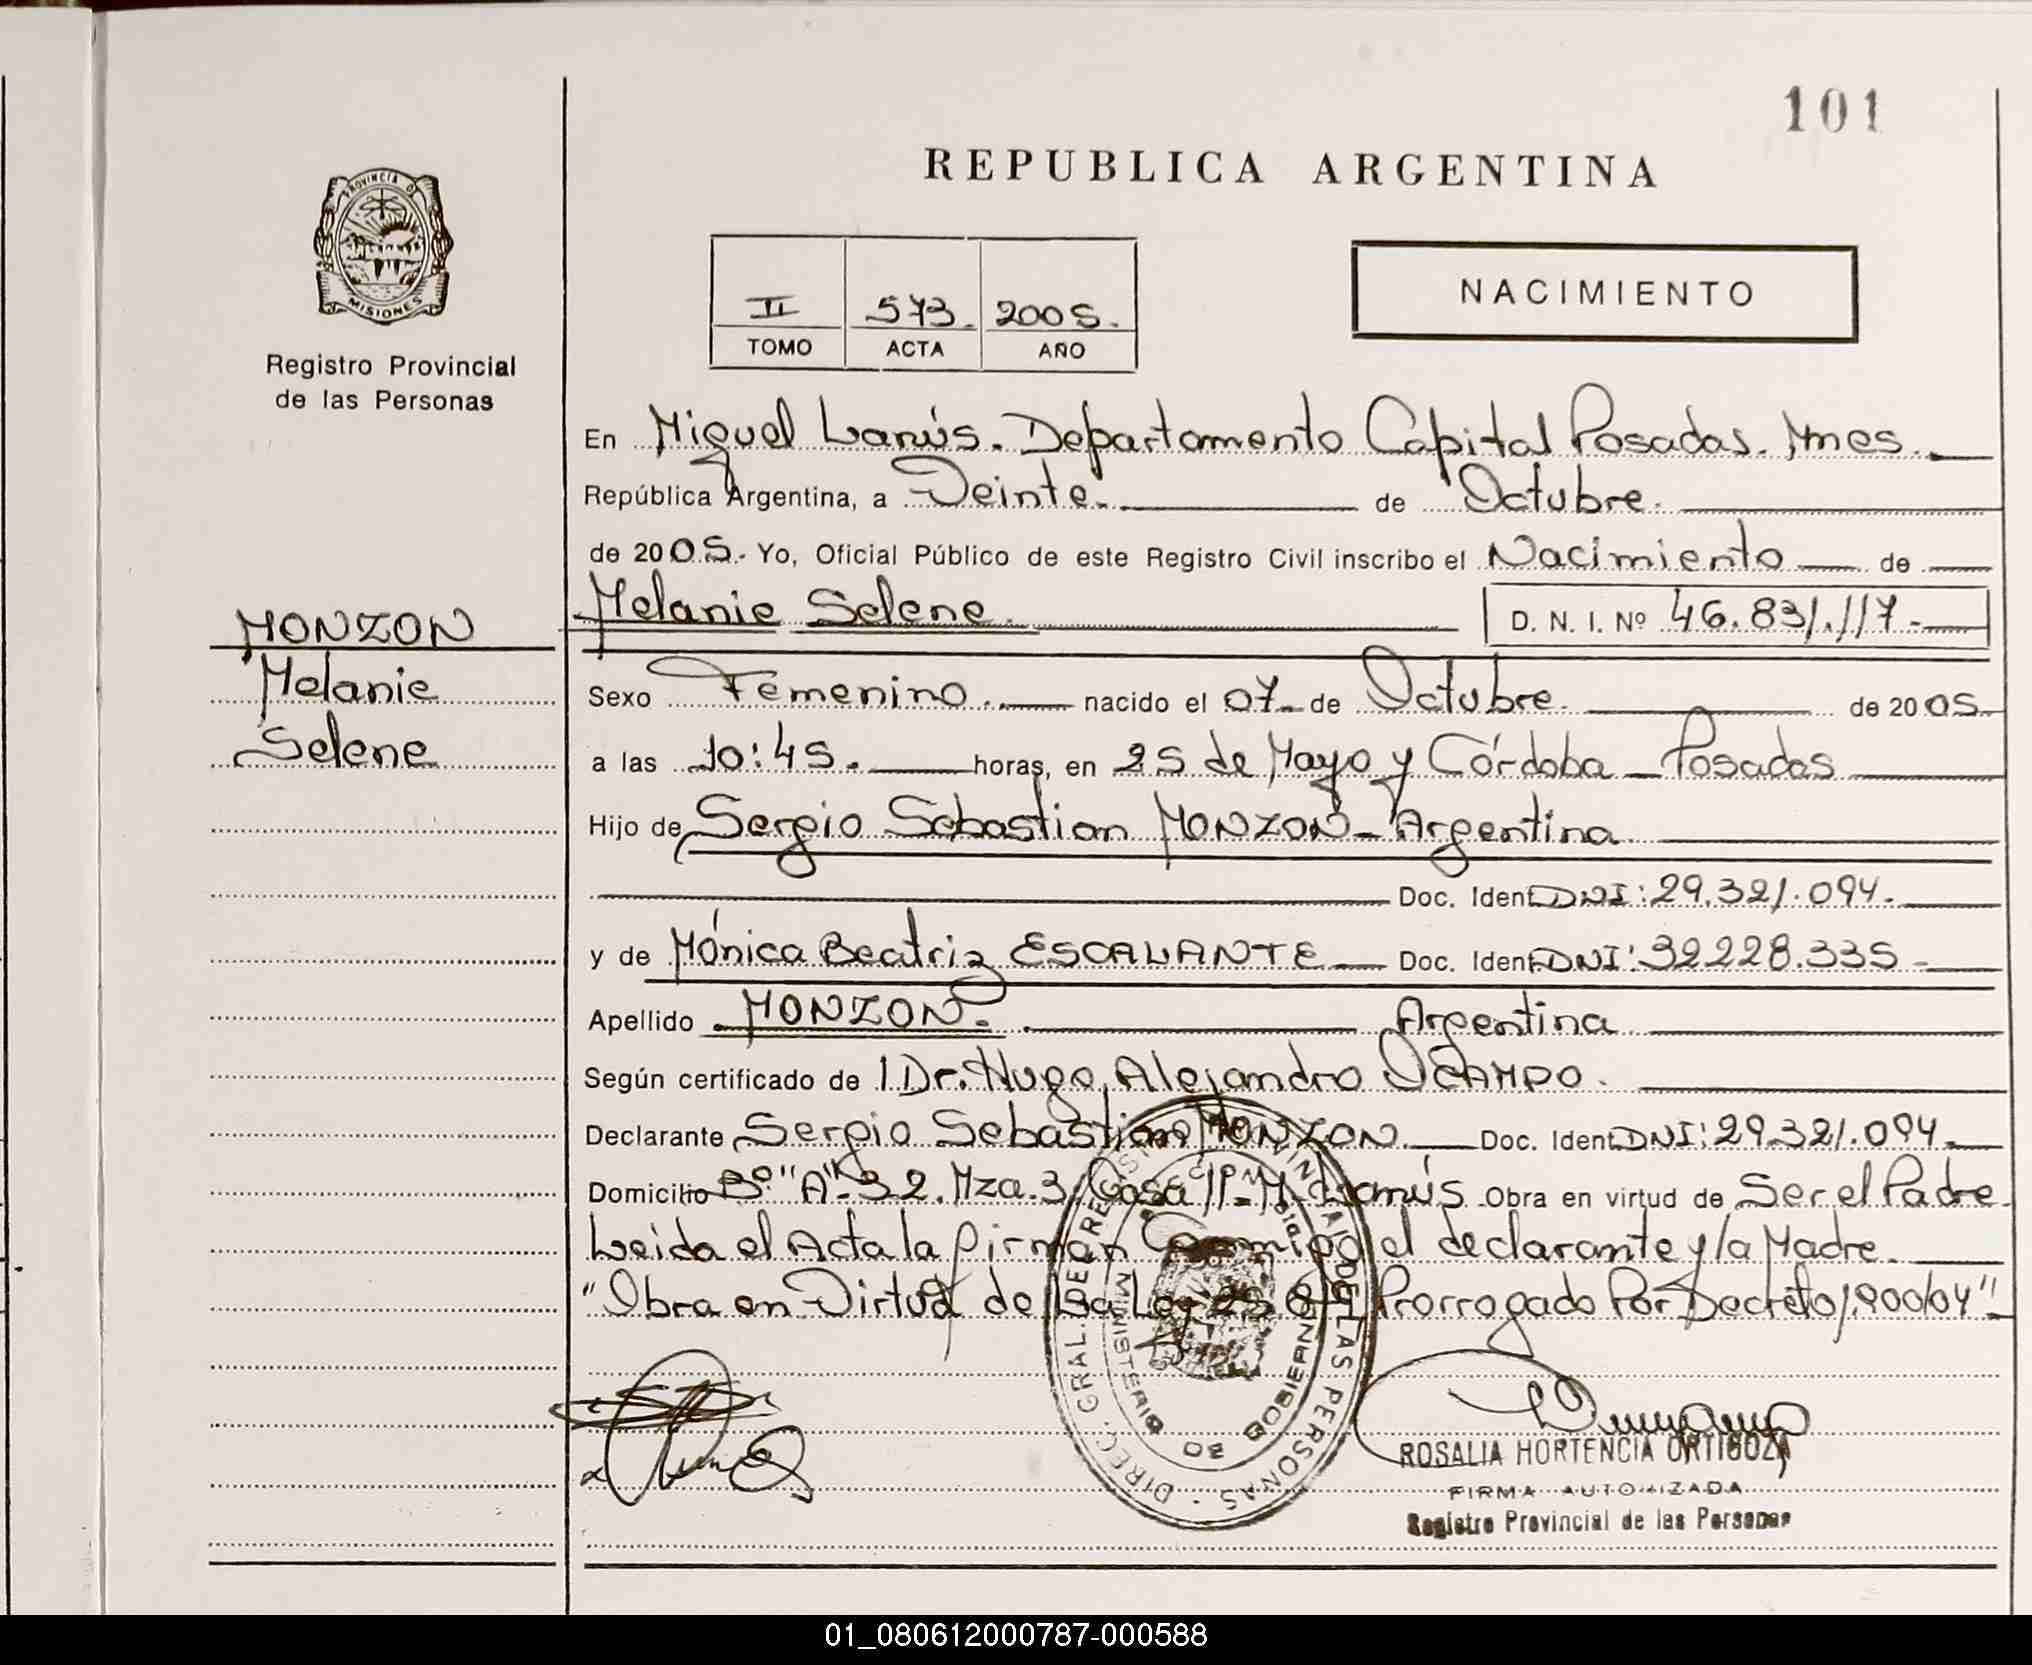 101
REPUBLICA ARGENTINA
PROVINCIA D
MISIONES
Registro Provincial
de las Personas
II 573. 2005.
TOMO ACTA AÑO
NACIMIENTO
En Miguel Lanús. Departamento Capital Posadas. Mnes.
República Argentina, a Veinte. de Octubre.
de 2005.- Yo, Oficial Público de este Registro Civil inscribo el Nacimiento de
MONZON
Melanie
Selene
Melanie Selene. D. N. I. Nº 46.831.117.-
Sexo Femenino. nacido el 07 de Octubre. de 2005
a las 10:45. horas, en 25 de Mayo y Córdoba - Posadas
Hijo de Sergio Sebastian MONZON - Argentina
Doc. Ident. DNI: 29.321.094.
y de Mónica Beatriz ESCALANTE Doc. Ident. DNI: 32228.335
Apellido MONZON. Argentina
Según certificado de l Dr. Hugo Alejandro OCAMPO.
Declarante Sergio Sebastian MONZON Doc. Ident. DNI: 29.321.094.
Domicilio Bº "A" 32. Mza. 3 Casa 11 - M. Lanús Obra en virtud de Ser el Padre
Leida el Acta la firman Conmigo el declarante y la Madre.
"Obra en Virtud de La Ley 25.819 Prorrogado Por Decreto 1.900/04"
DIREC. GRAL. DE REGISTRO PROVINCIAL DE LAS PERSONAS
MINISTERIO DE GOBIERNO
ROSALIA HORTENCIA ORTIGOZA
FIRMA AUTORIZADA
Registro Provincial de las Personas
01_080612000787-000588